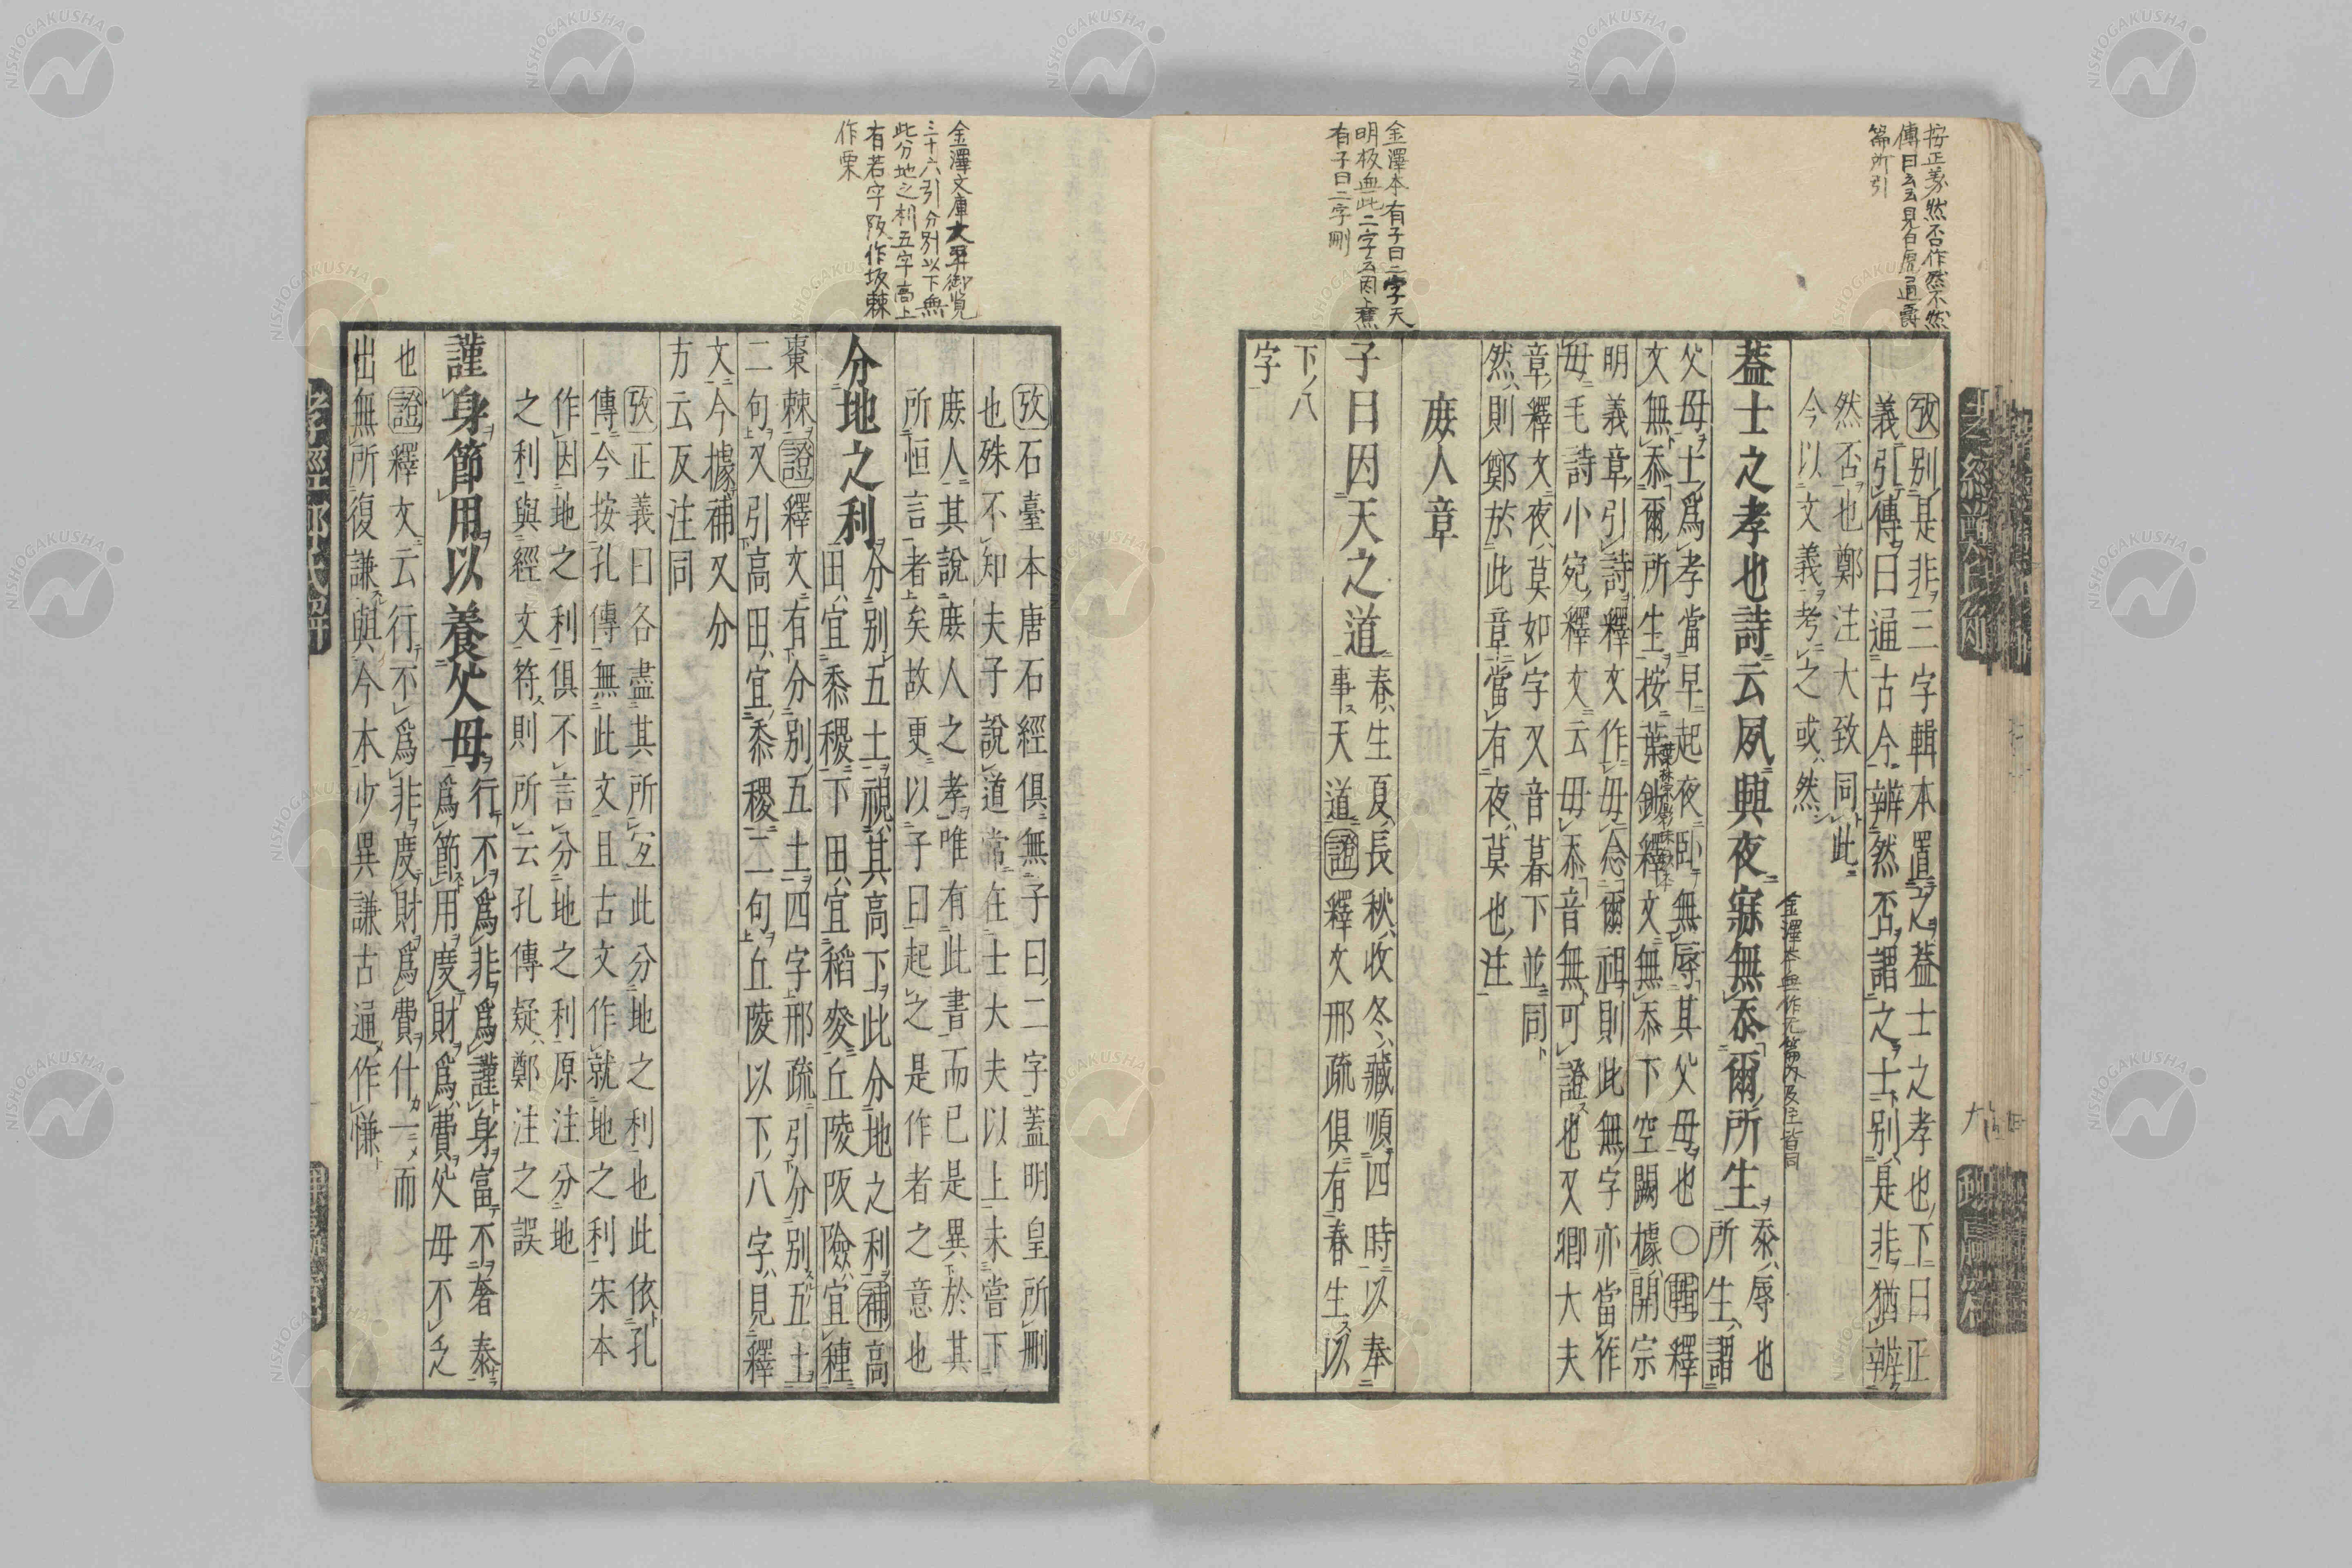 按正義然否作然不然
傳曰云云見白虎通爵
篇所引
金澤本有子曰二字天
明板無此二字云因上舊
有子曰二字刪
攷別是非三字輯本置之蓋士之孝也下曰正
義引傳曰通古今辨然否謂之士別是非猶辨
然否也鄭注大致同此
今以文義考之或然
蓋士之孝也詩云夙興夜寐無忝爾所生忝辱也
所生謂
金澤本無作无篇內及注皆同
父母士爲孝當早起夜臥無辱其父母也○輯釋
文無忝爾所生按葉鈔釋文無忝下空闕據開宗
明義章引詩釋文作毋念爾祖則此無字亦當作
毋毛詩小宛釋文云毋忝音無可證也又卿大夫
章釋文夜莫如字又音暮下並同
然則鄭於此章當有夜莫也注
庶人章
子曰因天之道春生夏長秋收冬藏順四時以奉
事天道證釋文邢疏俱有春生以
下八
字
金澤文庫大平御覽
三十六引分別以下無
此分地之利五字高上
有若字阪作坂棘
作栗
攷石臺本唐石經俱無子曰二字蓋明皇所刪
也殊不知夫子說道常在士大夫以上未嘗下
庶人其說庶人之孝唯有此書而已是異於其
所恒言者矣故更以子曰起之是作者之意也
分地之利分別五土視其高下此分地之利補高
田宜黍稷下田宜稻麥丘陵阪險宜種
棗棘證釋文有分別五土四字邢疏引分別五土
二句又引高田宜黍稷二句丘陵以下八字見釋
文今據補又分
方云反注同
攷正義曰各盡其所宜此分地之利也此依孔
傳今按孔傳無此文且古文作就地之利宋本
作因地之利俱不言分地之利原注分地
之利與經文符則所云孔傳疑鄭注之誤
謹身節用以養父母行不爲非爲謹身富不奢泰
爲節用度財爲費父母不乏
也證釋文云行不爲非度財爲費什一而
出無所復謙與今本少異謙古通作慊